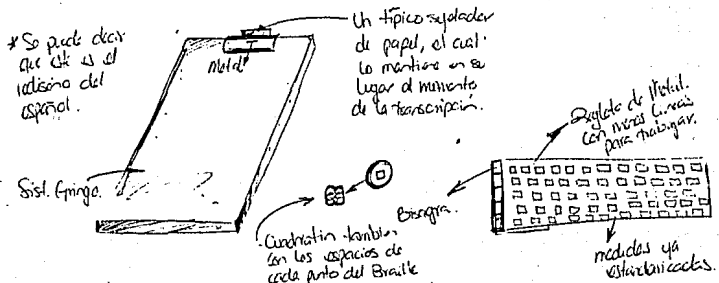 * Se puede decir
que este es el
rediseño del
español.
Metal
Un típico sujetador
de papel, el cual
lo mantiene en su
lugar al momento
de la transcripción.
Sist. Gringo.
Cuadratin tambien
con los espacios de
cada punto del Braille
Bisagra.
Regleta de Metal.
con menos lineas
para trabajar.
medidas ya
estandarizadas.